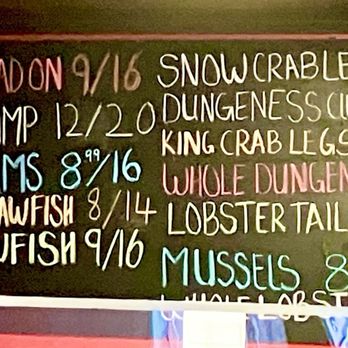 ADON 9/16
MP 12/20
MS 8⁹⁹/16
AWFISH 8/14
UFISH 9/16
SNOW CRAB LE
DUNGENESS CL
KING CRAB LEGS
WHOLE DUNGEN
LOBSTER TAIL
MUSSELS 8
WHOLE LOBST